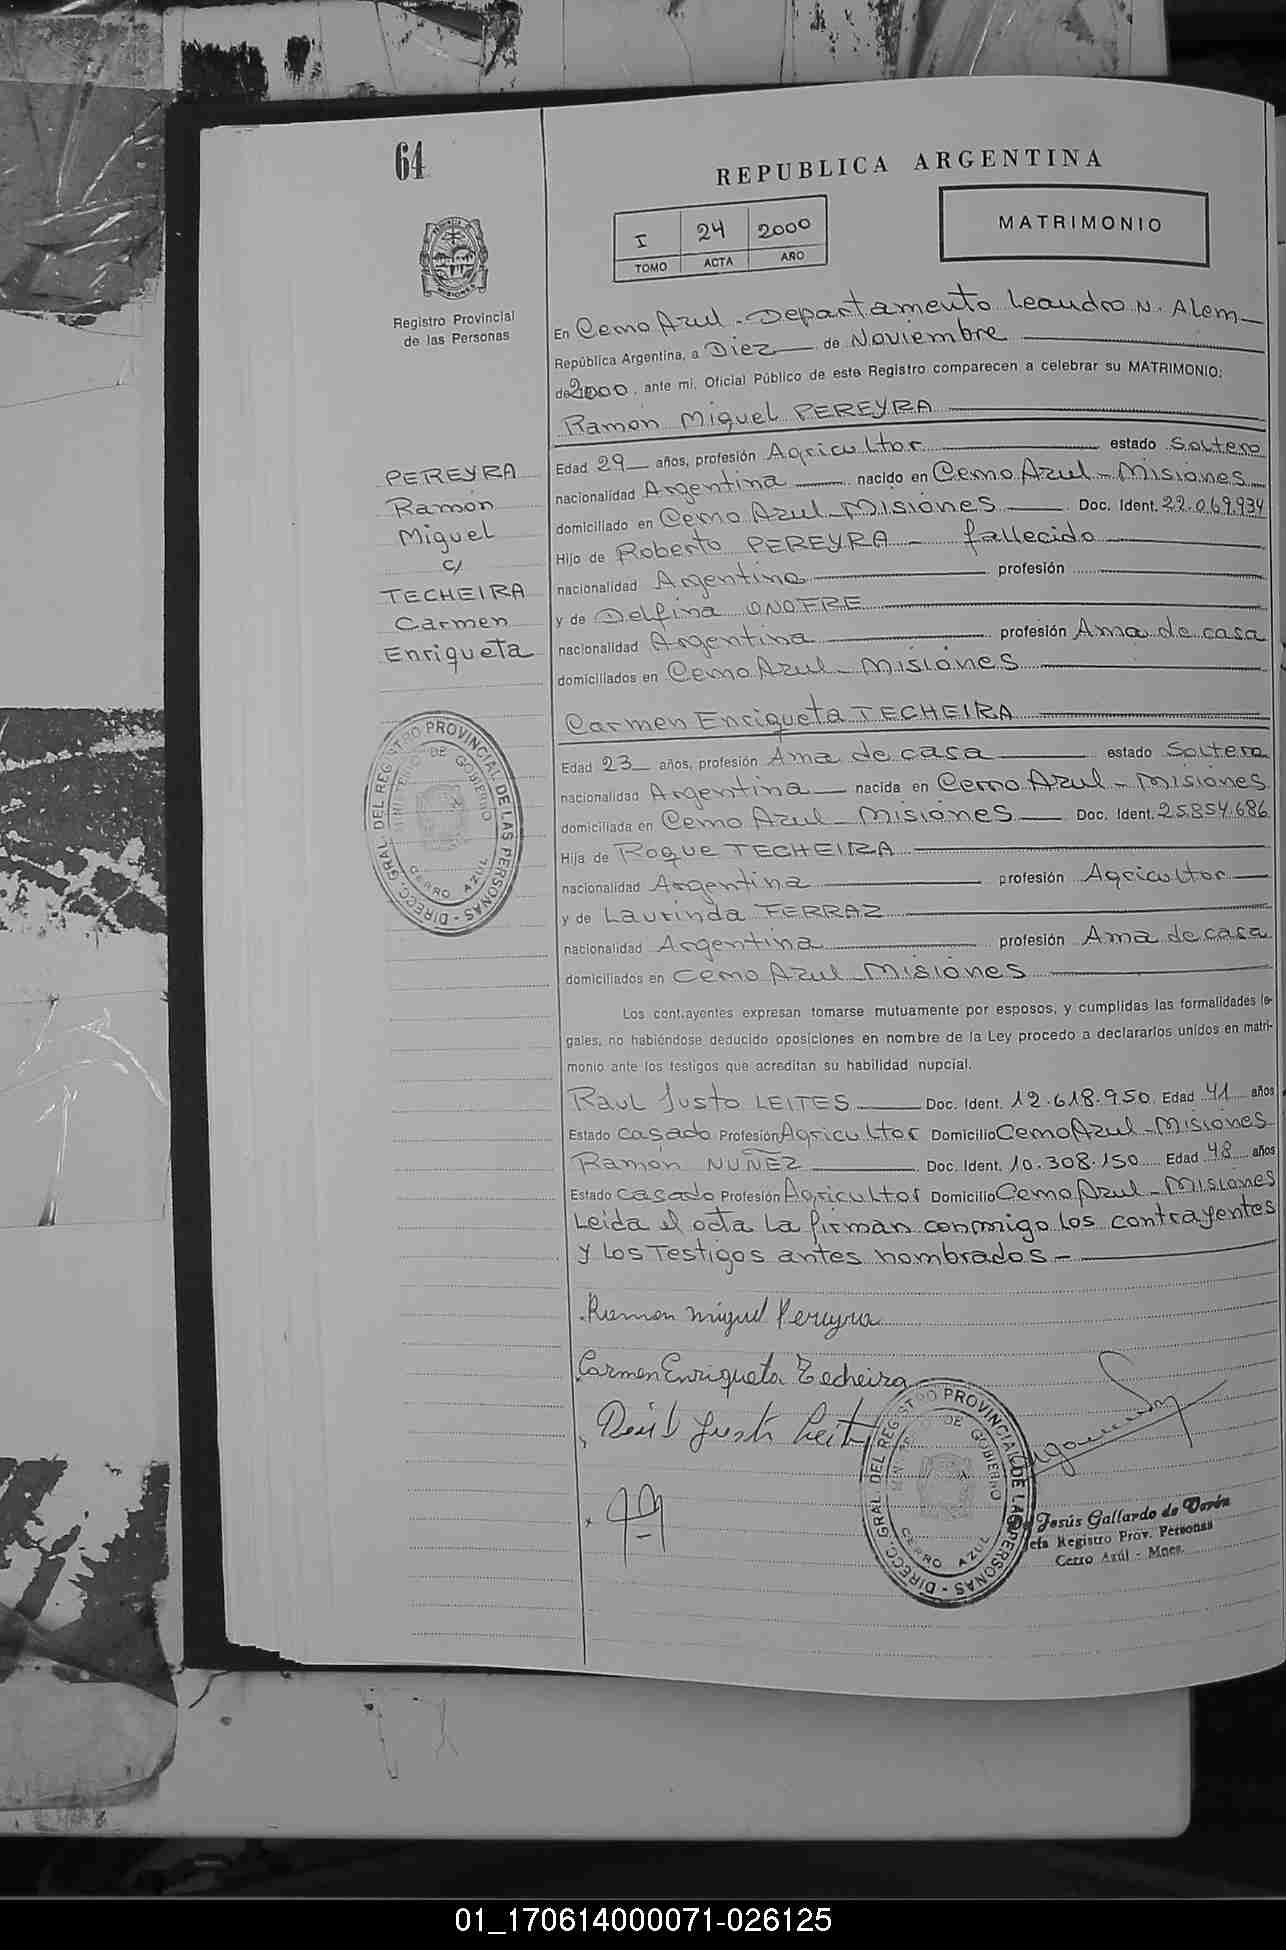 64
REPUBLICA ARGENTINA
I 24 2000
TOMO ACTA AÑO
MATRIMONIO
PROVINCIA DE MISIONES
Registro Provincial
de las Personas
En Cerro Azul - Departamento Leandro N. Alem
República Argentina, a Diez de Noviembre
de 2000, ante mí, Oficial Público de este Registro comparecen a celebrar su MATRIMONIO:
Ramón Miguel PEREYRA
Edad 29 años, profesión Agricultor estado Soltero
nacionalidad Argentina nacido en Cerro Azul - Misiones
domiciliado en Cerro Azul - Misiones Doc. Ident. 22.069.934
Hijo de Roberto PEREYRA - fallecido
nacionalidad Argentina profesión
y de Delfina ONOFRE
nacionalidad Argentina profesión Ama de casa
domiciliados en Cerro Azul - Misiones
PEREYRA
Ramón
Miguel
c/
TECHEIRA
Carmen
Enriqueta
Carmen Enriqueta TECHEIRA
Edad 23 años, profesión Ama de casa estado Soltera
nacionalidad Argentina nacida en Cerro Azul - Misiones
domiciliada en Cerro Azul - Misiones Doc. Ident. 25.854.686
Hija de Roque TECHEIRA
nacionalidad Argentina profesión Agricultor
y de Laurinda FERRAZ
nacionalidad Argentina profesión Ama de casa
domiciliados en Cerro Azul - Misiones
DIRECC. GRAL. DEL REGISTRO PROVINCIAL DE LAS PERSONAS
MINISTERIO DE GOBIERNO
CERRO AZUL
Los contrayentes expresan tomarse mutuamente por esposos, y cumplidas las formalidades le-
gales, no habiéndose deducido oposiciones en nombre de la Ley procedo a declararlos unidos en matri-
monio ante los testigos que acreditan su habilidad nupcial.
Raul Justo LEITES Doc. Ident. 12.618.950 Edad 41 años
Estado casado Profesión Agricultor Domicilio Cerro Azul - Misiones
Ramón NUÑEZ Doc. Ident. 10.308.150 Edad 48 años
Estado casado Profesión Agricultor Domicilio Cerro Azul - Misiones
Leida el acta la firman conmigo los contrayentes
y los Testigos antes nombrados -
Ramon Miguel Pereyra
Carmen Enriqueta Techeira
Raúl Justo Leites
DIRECC. GRAL. DEL REGISTRO PROVINCIAL DE LAS PERSONAS
MINISTERIO DE GOBIERNO
CERRO AZUL
Jesús Gallardo de
Jefa Registro Prov. Personas
Cerro Azul - Mnes.
01_170614000071-026125